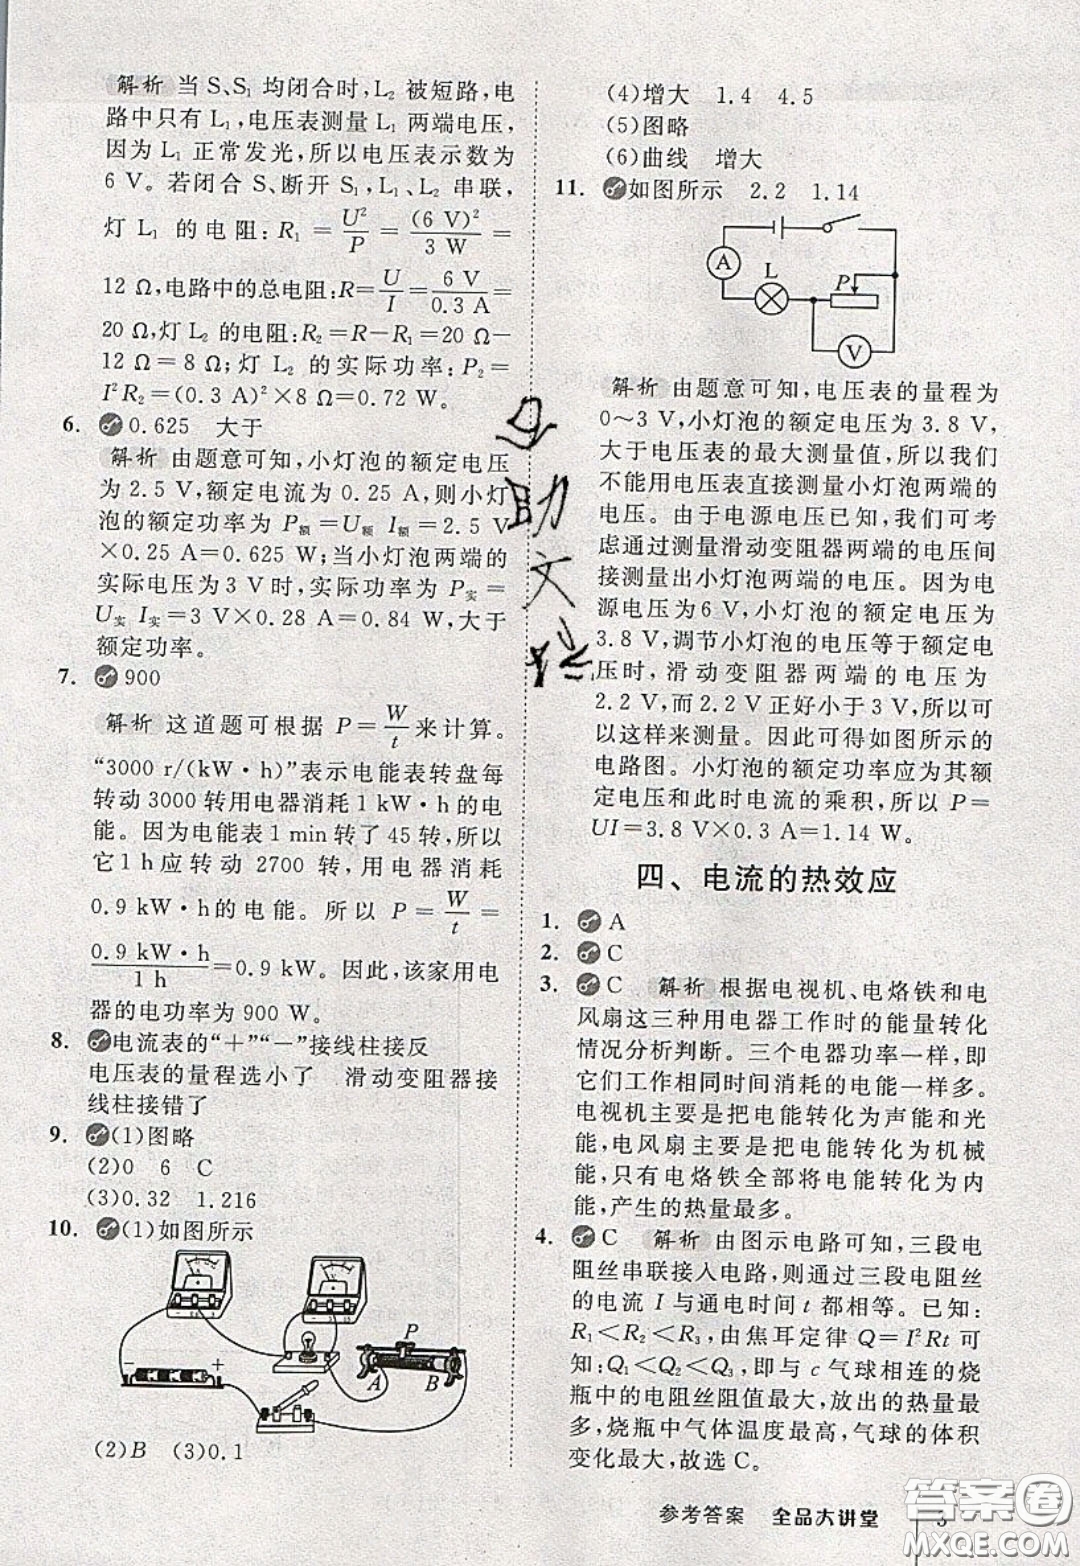 解析 当 S、S₁ 均闭合时,L₂ 被短路,电
路中只有 L₁,电压表测量 L₁ 两端电压,
因为 L₁ 正常发光,所以电压表示数为
6 V。若闭合 S、断开 S₁,L₁、L₂ 串联,
灯 L₁ 的电阻:R₁=U²/P=(6 V)²/3 W=
12 Ω,电路中的总电阻:R=U/I=6 V/0.3 A=
20 Ω,灯 L₂ 的电阻:R₂=R-R₁=20 Ω-
12 Ω=8 Ω;灯 L₂ 的实际功率:P₂=
I²R₂=(0.3 A)²×8 Ω=0.72 W。
6. 0.625 大于
解析 由题意可知,小灯泡的额定电压
为 2.5 V,额定电流为 0.25 A,则小灯
泡的额定功率为 P额=U额 I额=2.5 V
×0.25 A=0.625 W;当小灯泡两端的
实际电压为 3 V 时,实际功率为 P实=
U实 I实=3 V×0.28 A=0.84 W,大于
额定功率。
7. 900
解析 这道题可根据 P=W/t来计算。
“3000 r/(kW·h)”表示电能表转盘每
转动 3000 转用电器消耗 1 kW·h 的电
能。因为电能表 1 min 转了 45 转,所以
它 1 h 应转动 2700 转,用电器消耗
0.9 kW·h 的电能。所以 P=W/t=
0.9 kW·h/1 h=0.9 kW。因此,该家用电
器的电功率为 900 W。
8. 电流表的“+”“-”接线柱接反
电压表的量程选小了 滑动变阻器接
线柱接错了
9. (1)图略
(2)0 6 C
(3)0.32 1.216
10. (1)如图所示
- +
P
A B
(2)B (3)0.1
(4)增大 1.4 4.5
(5)图略
(6)曲线 增大
11. 如图所示 2.2 1.14
A
L
P
V
解析 由题意可知,电压表的量程为
0~3 V,小灯泡的额定电压为 3.8 V,
大于电压表的最大测量值,所以我们
不能用电压表直接测量小灯泡两端的
电压。由于电源电压已知,我们可考
虑通过测量滑动变阻器两端的电压间
接测量出小灯泡两端的电压。因为电
源电压为6 V,小灯泡的额定电压为
3.8 V,调节小灯泡的电压等于额定电
压时,滑动变阻器两端的电压为
2.2 V,而 2.2 V 正好小于 3 V,所以可
以这样来测量。因此可得如图所示的
电路图。小灯泡的额定功率应为其额
定电压和此时电流的乘积,所以 P=
UI=3.8 V×0.3 A=1.14 W。
四、电流的热效应
1. A
2. C
3. C 解析 根据电视机、电烙铁和电
风扇这三种用电器工作时的能量转化
情况分析判断。三个电器功率一样,即
它们工作相同时间消耗的电能一样多。
电视机主要是把电能转化为声能和光
能,电风扇主要是把电能转化为机械
能,只有电烙铁全部将电能转化为内
能,产生的热量最多。
4. C 解析 由图示电路可知,三段电
阻丝串联接入电路,则通过三段电阻丝
的电流 I 与通电时间 t 都相等。已知:
R₁<R₂<R₃,由焦耳定律 Q=I²Rt 可
知:Q₁<Q₂<Q₃,即与 c 气球相连的烧
瓶中的电阻丝阻值最大,放出的热量最
多,烧瓶中气体温度最高,气球的体积
变化最大,故选 C。
参考答案 全品大讲堂 3
答案圈
MXQE.COM